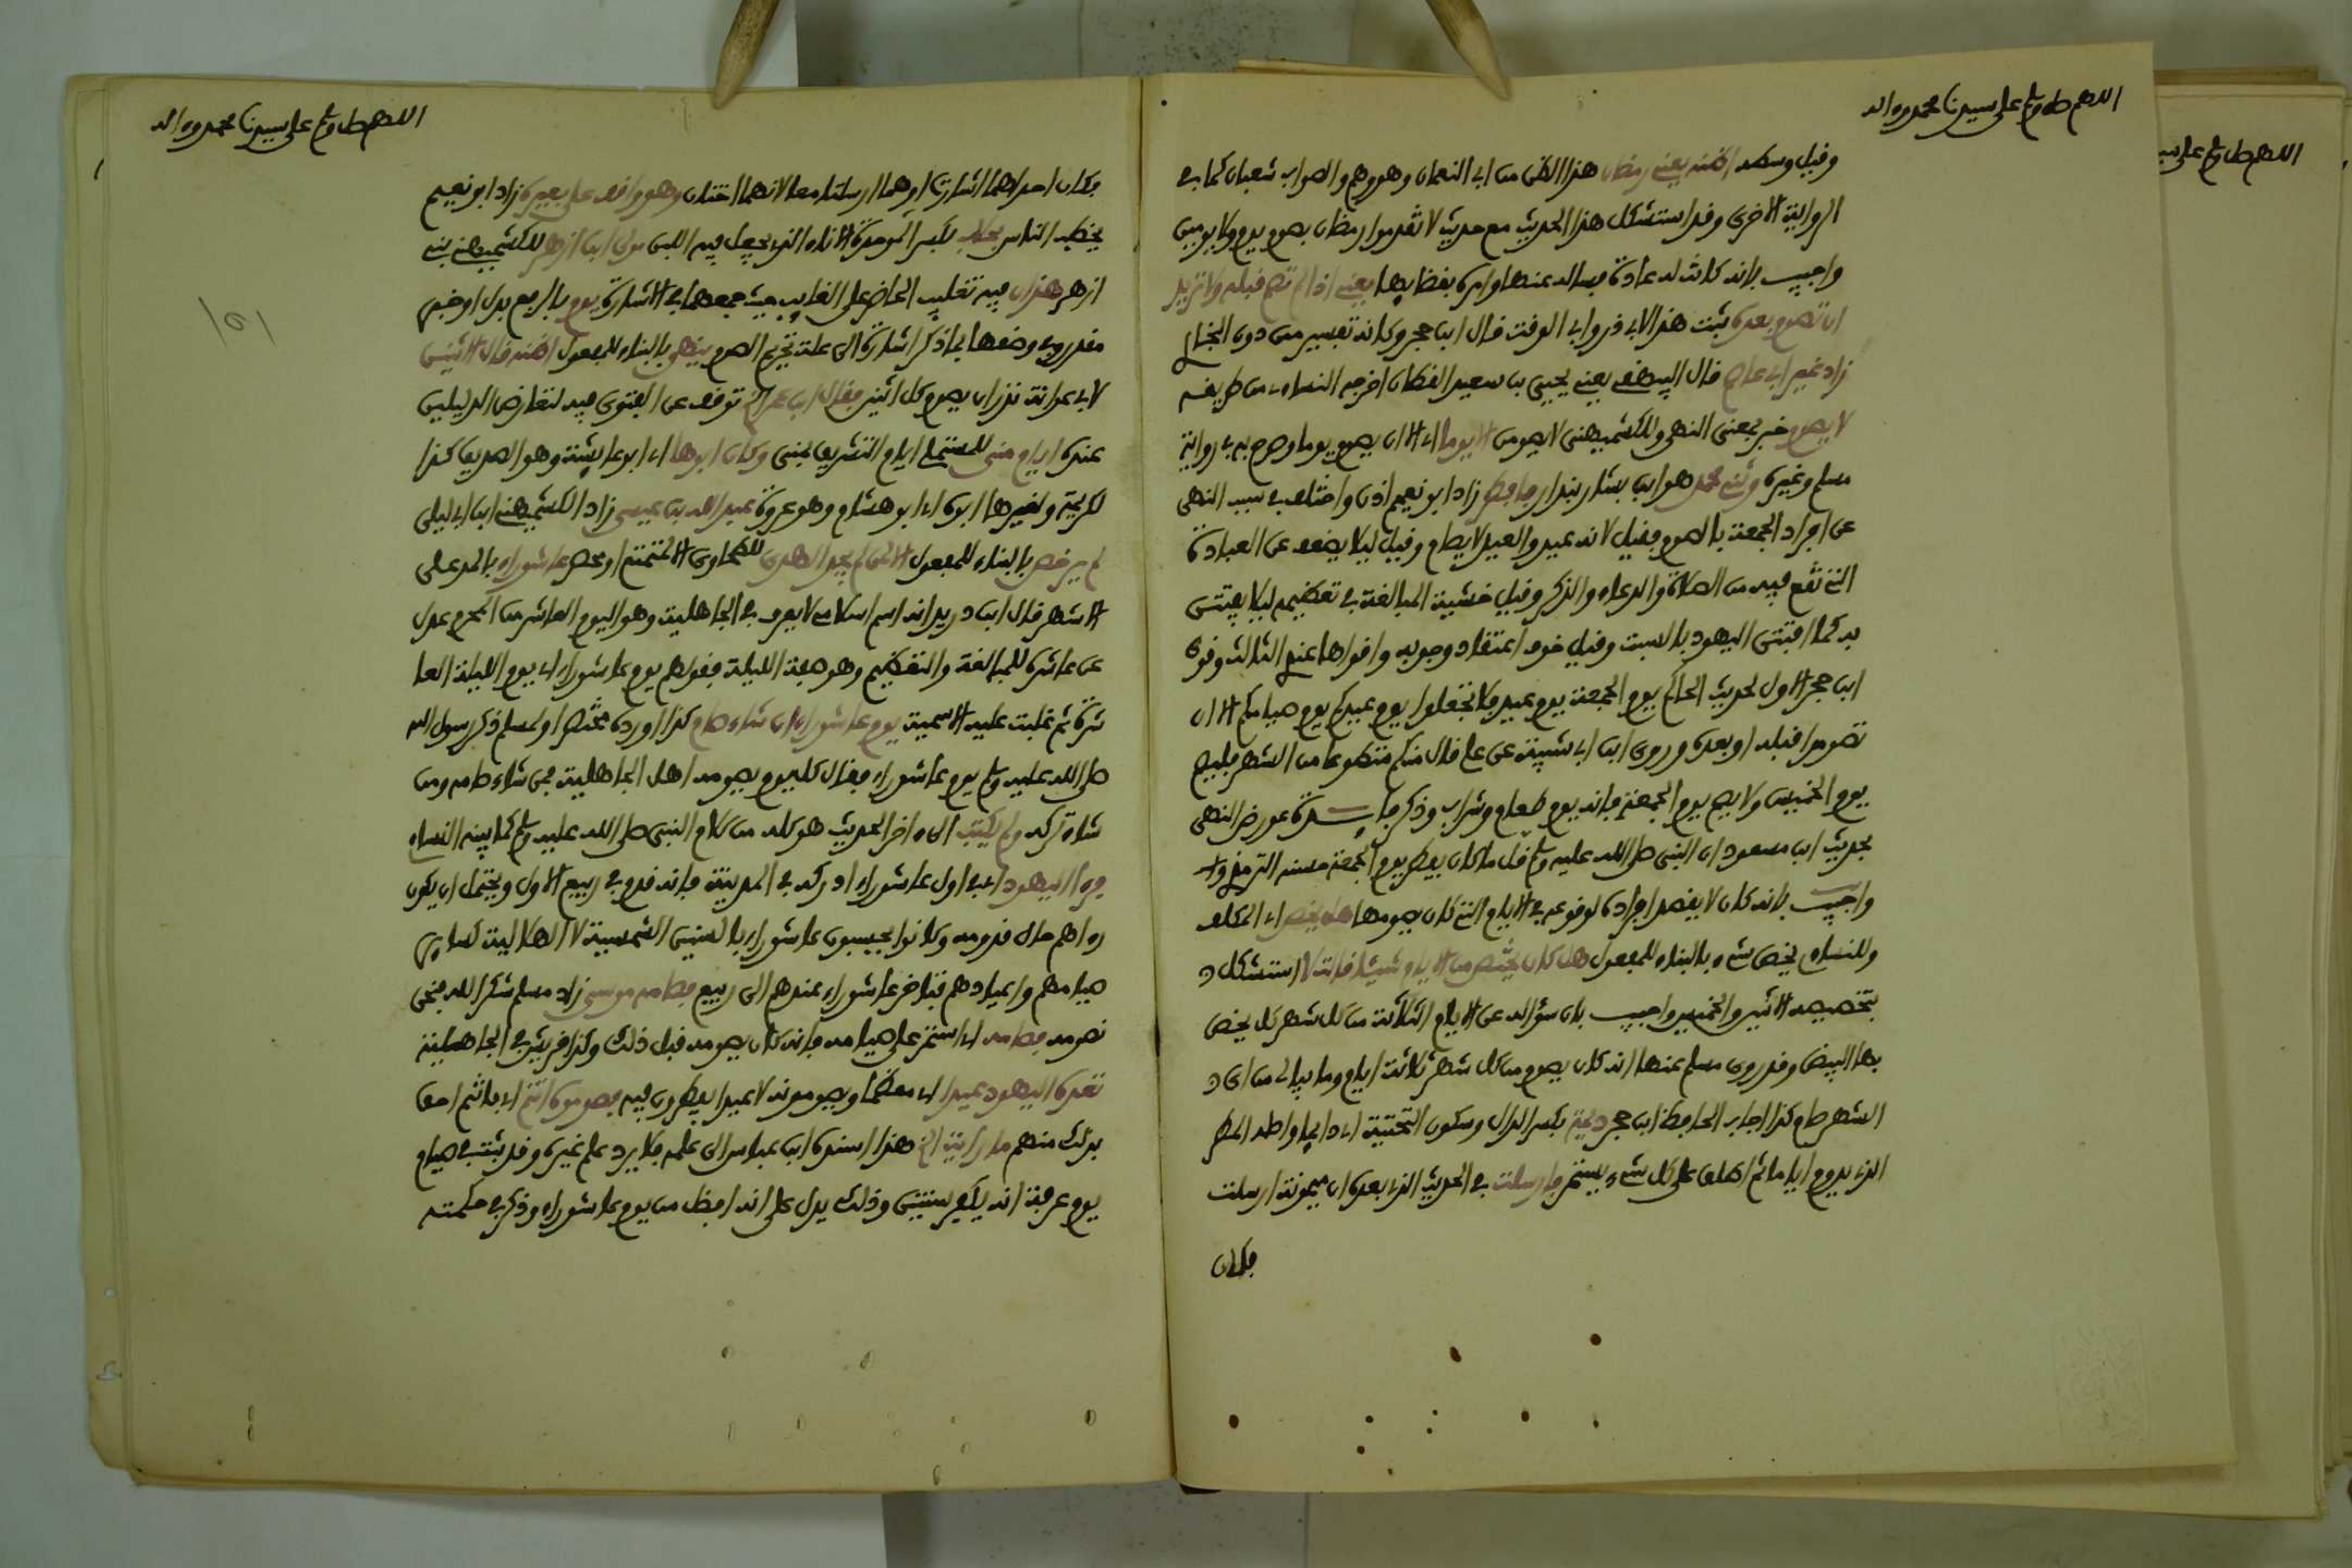 اللهم صل وسلم على سيدنا محمد وءاله
وقيل وسطه اظنه يعنى رمضان هذا الظن من ابى النعمان وهو وهم والصواب شعبان كما فى
الرواية الاخرى وقد استشكل هذا الحديث مع حديث لا تقدموا رمضان بصوم يوم ولا يومين
واجيب بانه كانت له عادة فساله عنها وامره بقضايها يعنى اذا لم تصم قبله ولا تريد
ان تصوم بعده ثبت هذا لابى ذر وابى الوقت قال ابن حجر وكانه تفسير من دون البخارى
زاد غير ابى عاصم قال البيهقى يعنى يحيى بن سعيد القطان اخرجه النساءى من طريقه
لا يصوم خبر بمعنى النهى وللكشميهنى لا يصومن الا يوما اى الا ان يصوم يوما وصرح به فى رواية
مسلم وغيره وثنى محمد هو ابن بشار بندار فافطرى زاد ابو نعيم اذن واختلف فى سبب النهى
عن افراد الجمعة بالصوم فقيل لانه عيد والعيد لا يصام وقيل ليلا يضعف عن العبادة
التى تقع فيه من الصلاة والدعاء والذكر وقيل خشية المبالغة فى تعظيمه ليلا يفتتن
به كما افتتن اليهود بالسبت وقيل خوف اعتقاد وجوبه واقواها عند الثالث وقوى
ابن حجر الاول لحديث الحاكم يوم الجمعة يوم عيد فلا تجعلوا يوم عيدكم يوم صيامكم الا ان
تصوموا قبله او بعده وروى ابن ابى شيبة عن على قال من كان منكم متطوعا من الشهر فليصم
يوم الخميس ولا يصم يوم الجمعة فانه يوم طعام وشراب وذكر عورض النهى
بحديث ابن مسعود ان النبى صلى الله عليه وسلم قل ما كان يفطر يوم الجمعة حسنه الترمذى
واجيب بانه كان لا يقصد افراده لوقوعه فى الايام التى كان يصومها هل يخص اى المكلف
وللنساءى يخص شىء بالبناء للمفعول هل كان يختص من الايام شيئا قالت لا استشكل
بتخصيصه الاثنين والخميس واجيب بان سؤاله عن الايام الثلاثة من كل شهر بل يخص
بها البيض وقد روى مسلم عنها انه كان يصوم من كل شهر ثلاثة ايام وما يبالى من اى
الشهر صام كذا اجاب الحافظ ابن حجر ديمة بكسر الدال وسكون التحتية اى دايما واصله المطر
الذى يدوم اياما ثم اطلق على كل شىء يستمر فارسلت فى الحديث الذى بعده ان ميمونة ارسلت
فكان
اللهم صل وسلم على سيدنا محمد وءاله
فكان احداهما اشارت او هما ارسلتا معا لانهما اختان وهو واقف على بعيره زاد ابو نعيم
يخطب الناس بحلاب بكسر المهملة الاناء الذى يجعل فيه اللبن مولى ابن ازهر للكشميهنى بنى
ازهر هذان فيه تغليب الحاضر على الغايب حيث جمعهما فى الاشارة يوم بالرفع بدل او خبر
مقدر وفى وصفهما بما ذكر اشارة الى علة تحريم الصوم ينظر بالبناء للمفعول اظنه قال الاثنين
لابى عوانة نذر ان يصوم كل اثنين فقال ابن عمر الخ توقف عن الفتوى فيه لتعارض الدليلين
عنده ايام منى للمستملى ايام التشريق بمنى وكان ابوها اى ابو عايشة وهو الصديق كذا
لكريمة ولغيرها ابوه اى ابو هشام وهو عروة عبد الله بن عيسى زاد الكشميهنى ابن ابى ليلى
لم يرخص بالبناء للمفعول الا لمن لم يجد الهدى للطحاوى الا لمتمتع او محصر عاشوراء بالمد على
الاشهر قال ابن دريد انه اسم اسلامى لا يعرف فى الجاهلية وهو اليوم العاشر من المحرم عدل
عن عاشرة للمبالغة والتعظيم وهو صفة الليلة فقولهم يوم عاشوراء اى يوم الليلة العا
شرة ثم غلبت عليه الاسمية يوم عاشوراء ان شاء صام كذا اورده مختصرا ولمسلم ذكر رسول الله
صلى الله عليه وسلم يوم عاشوراء فقال كان يوم يصومه اهل الجاهلية فمن شاء صامه ومن
شاء تركه ولم يكتب الى ءاخر الحديث هو كله من كلام النبى صلى الله عليه وسلم كما بينه النساءى
فرءا اليهود اى فى اول عاشوراء ادركه فى المدينة فانه قدم فى ربيع الاول ويحتمل ان يكون
رءاهم حال قدومه وكانوا يحسبون عاشوراء بالسنين الشمسية لا الهلالية كساير
صيامهم واعيادهم فتاخر عاشوراء عندهم الى ربيع فصامه موسى زاد مسلم شكرا لله فنحن
نصومه فصامه اى استمر على صيامه فانه كان يصومه قبل ذلك وكذا قريش فى الجاهلية
تعده اليهود عيدا اى معظما ويصومونه لا عيدا يفطرون فيه فصوموه انتم اى فانتم احق
بذلك منهم ما رايت الخ هذا اسنده ابن عباس الى علمه فلا يرد علم غيره وقد ثبت فى صيام
يوم عرفة انه يكفر سنتين وذلك يدل على انه افضل من يوم عاشوراء وذكر فى حكمته